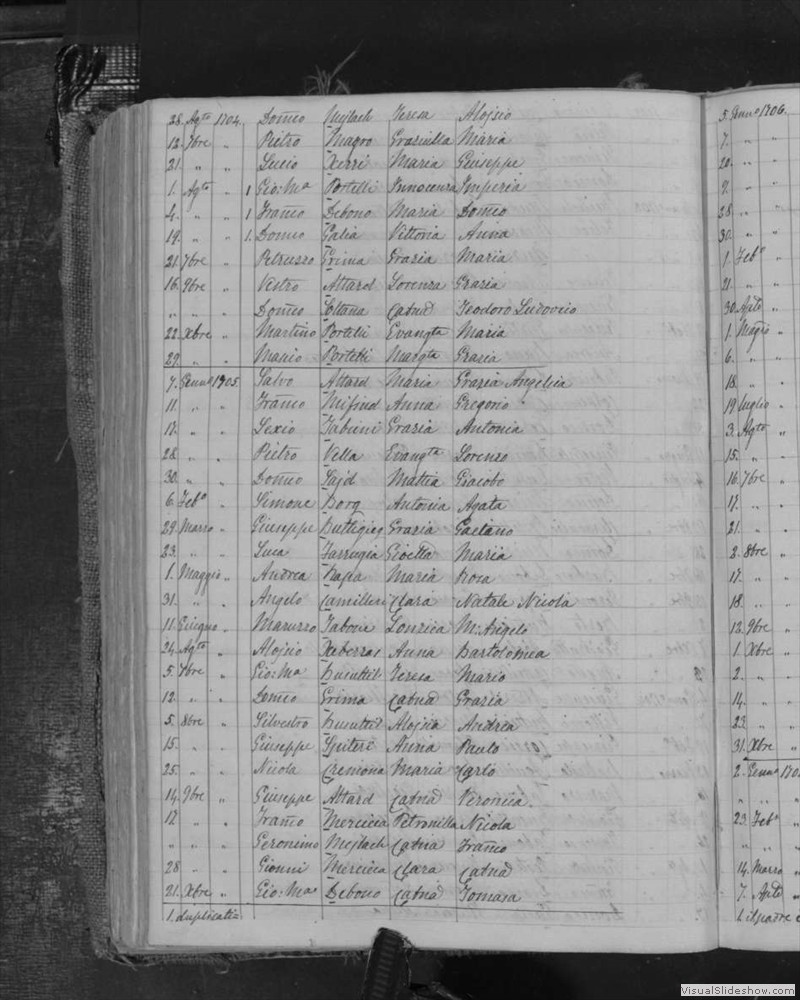 28. Agto 1704. Domco Mejlach Teresa Aloisio
12. 7bre " Pietro Magro Graziulla Maria
21. " " Lucio Xerri Maria Giuseppe
1. Agto " 1 Gio: Ma Portelli Innocenza Imperia
4. " " 1 Franco Debono Maria Domco
19. " " 1. Domco Galia Vittoria Anna
21. 7bre " Petruzzo Grima Grazia Maria
16. 9bre " Vestro Attard Lorenza Grazia
" " " Domco Soltana Catna Teodoro Ludovico
22. Xbre " Martino Portelli Evangta Maria
29. " " Mario Portelli Margta Grazia
7. Genno 1705. Salvo Attard Maria Grazia Angelica
11. " " Franco Mifsud Anna Gregorio
17. " " Lexio Tabuni Grazia Antonia
28. " " Pietro Vella Evangta Lorenzo
30. " " Domco Sajd Mattia Giacobo
6. Febo " Simone Borg Antonia Agata
29. Marzo " Giuseppe Buttigieg Grazia Gaetano
23. " " Luca Farrugia Gioetta Maria
1. Maggio " Andrea Rosa
31. " " Angelo Camilleri Clara Natale Nicola
11. Giugno " Maruzzo Tabone Lonzica M: Angelo
24. Agto " Aloisio Xeberras Anna Bartolomea
5. 7bre " Gio: Ma Busuttil Teresa Mario
12. " " Domco Grima Catna Grazia
5. 8bre " Silvestro Busuttil Aloisia Andrea
15. " " Giuseppe Spiteri Anna Paulo
25. " " Nicola Cremona Maria Carlo
14. 9bre " Giuseppe Attard Catna Veronica.
17 " " Franco Mercieca Petronilla Nicola
" " " Geronimo Mejlach Catna Franco
28 " " Gionni Mercieca Clara Catna
21. Xbre " Gio: Ma Debono Catna Tomasa
1. duplicati=
5. Genno 1706.
7. " "
20. " "
9. " "
28 " "
30. " "
1. Febo "
21. "
30. Agto "
1. Magio "
6. " "
18. " "
19 Luglio "
3. Agto "
15. " "
16. 7bre "
17. " "
21. " "
2. 8bre "
17. " "
18. " "
12. 9bre "
1. Xbre "
2. " "
14. " "
23. " "
31. Xbre "
2. Genno 170
" " "
23. Febo "
" " "
14. Marzo "
7. Agto "
1. il padre
VisualSlideshow.com